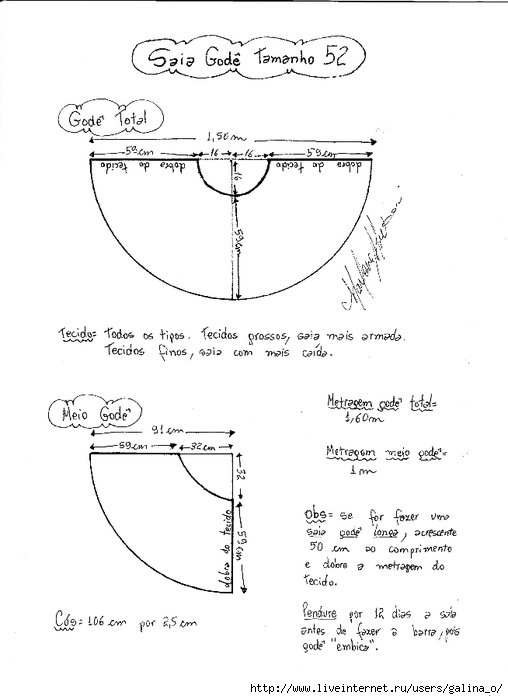 Saia Godê Tamanho 52
Godê Total
1,50m
59cm 16 16 59cm
dobra do tecido dobra do tecido
16
59cm
Tecido= Todos os tipos. Tecidos grossos, saia mais armada.
Tecidos finos, saia com mais caída.
Meio Godê
91 cm
59cm 32cm
32
59cm
dobra do tecido
Cós= 106 cm por 2,5 cm
Metragem godê total=
1,60m
Metragem meio godê=
1m
Obs= se for fazer uma
saia godê longa, acrescente
50 cm ao comprimento
e dobre a metragem do
tecido.
Pendure por 12 dias a saia
antes de fazer a barra, pois
godê "embica".
http://www.liveinternet.ru/users/galina_o/